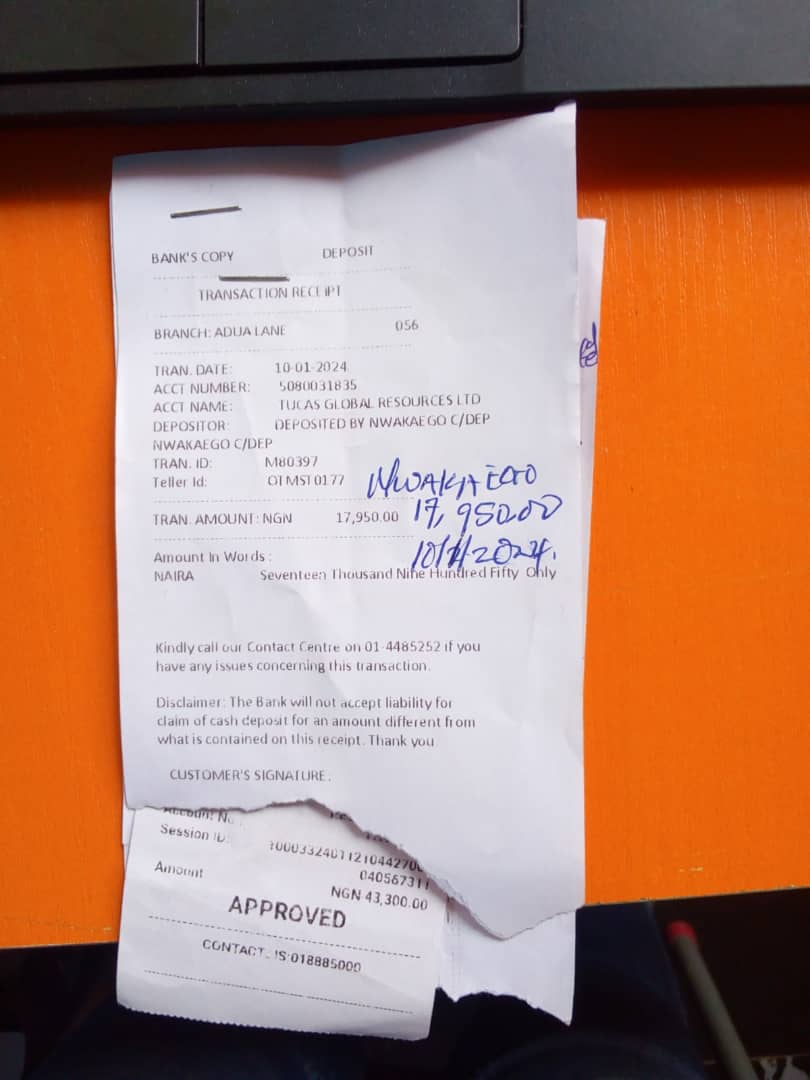 BANK'S COPY DEPOSIT
TRANSACTION RECEIPT
BRANCH: ADUA LANE 056
TRAN. DATE: 10-01-2024
ACCT NUMBER: 5080031835
ACCT NAME: TUCAS GLOBAL RESOURCES LTD
DEPOSITOR: DEPOSITED BY NWAKAEGO C/DEP
NWAKAEGO C/DEP
TRAN. ID: M80397
Teller Id: OTMST0177
NWAKAEGO
TRAN. AMOUNT: NGN 17,950.00 17,950.00
10/1/2024.
Amount In Words :
NAIRA Seventeen Thousand Nine Hundred Fifty Only
Kindly call our Contact Centre on 01-4485252 if you
have any issues concerning this transaction.
Disclaimer: The Bank will not accept liability for
claim of cash deposit for an amount different from
what is contained on this receipt. Thank you
CUSTOMER'S SIGNATURE:
Account
Session ID:
040567311
Amount NGN 43,300.00
APPROVED
CONTACT US:018885000